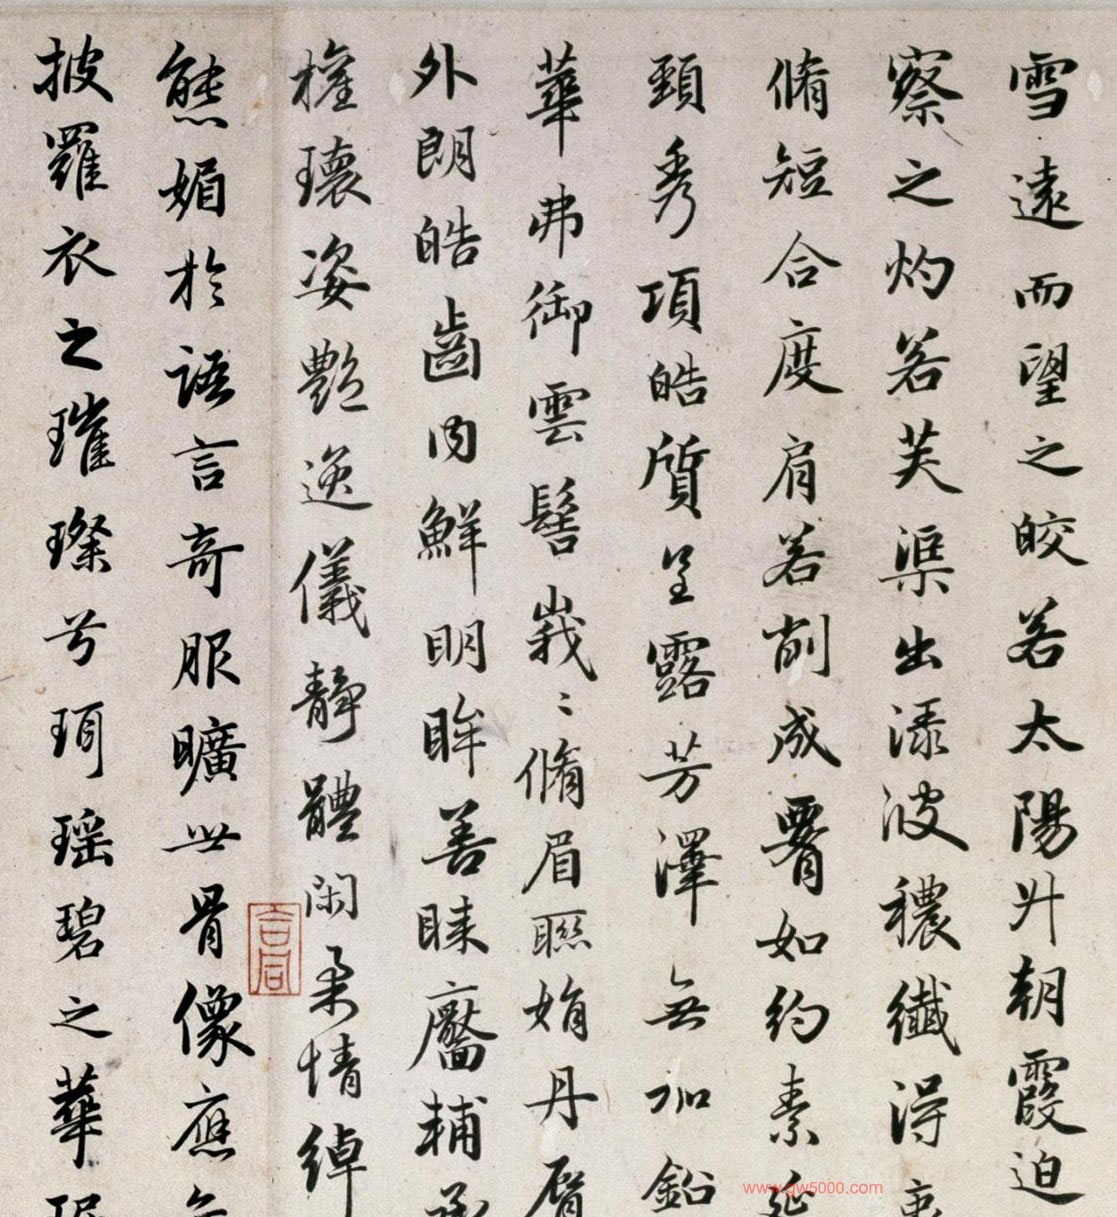 雪遠而望之皎若太陽升朝霞迫
察之灼若芙渠出淥波穠纖得衷
脩短合度肩若削成署如約素延
頸秀項皓質呈露芳澤無加鉛
華弗御雲髻峩〻脩眉聯娟丹脣
外朗皓齒内鮮明眸善睞靨輔承
權瓌姿艶逸儀靜體閑柔情綽
態媚於語言奇服曠世骨像應
披羅衣之璀璨兮珥瑶碧之華
www.gw5000.com